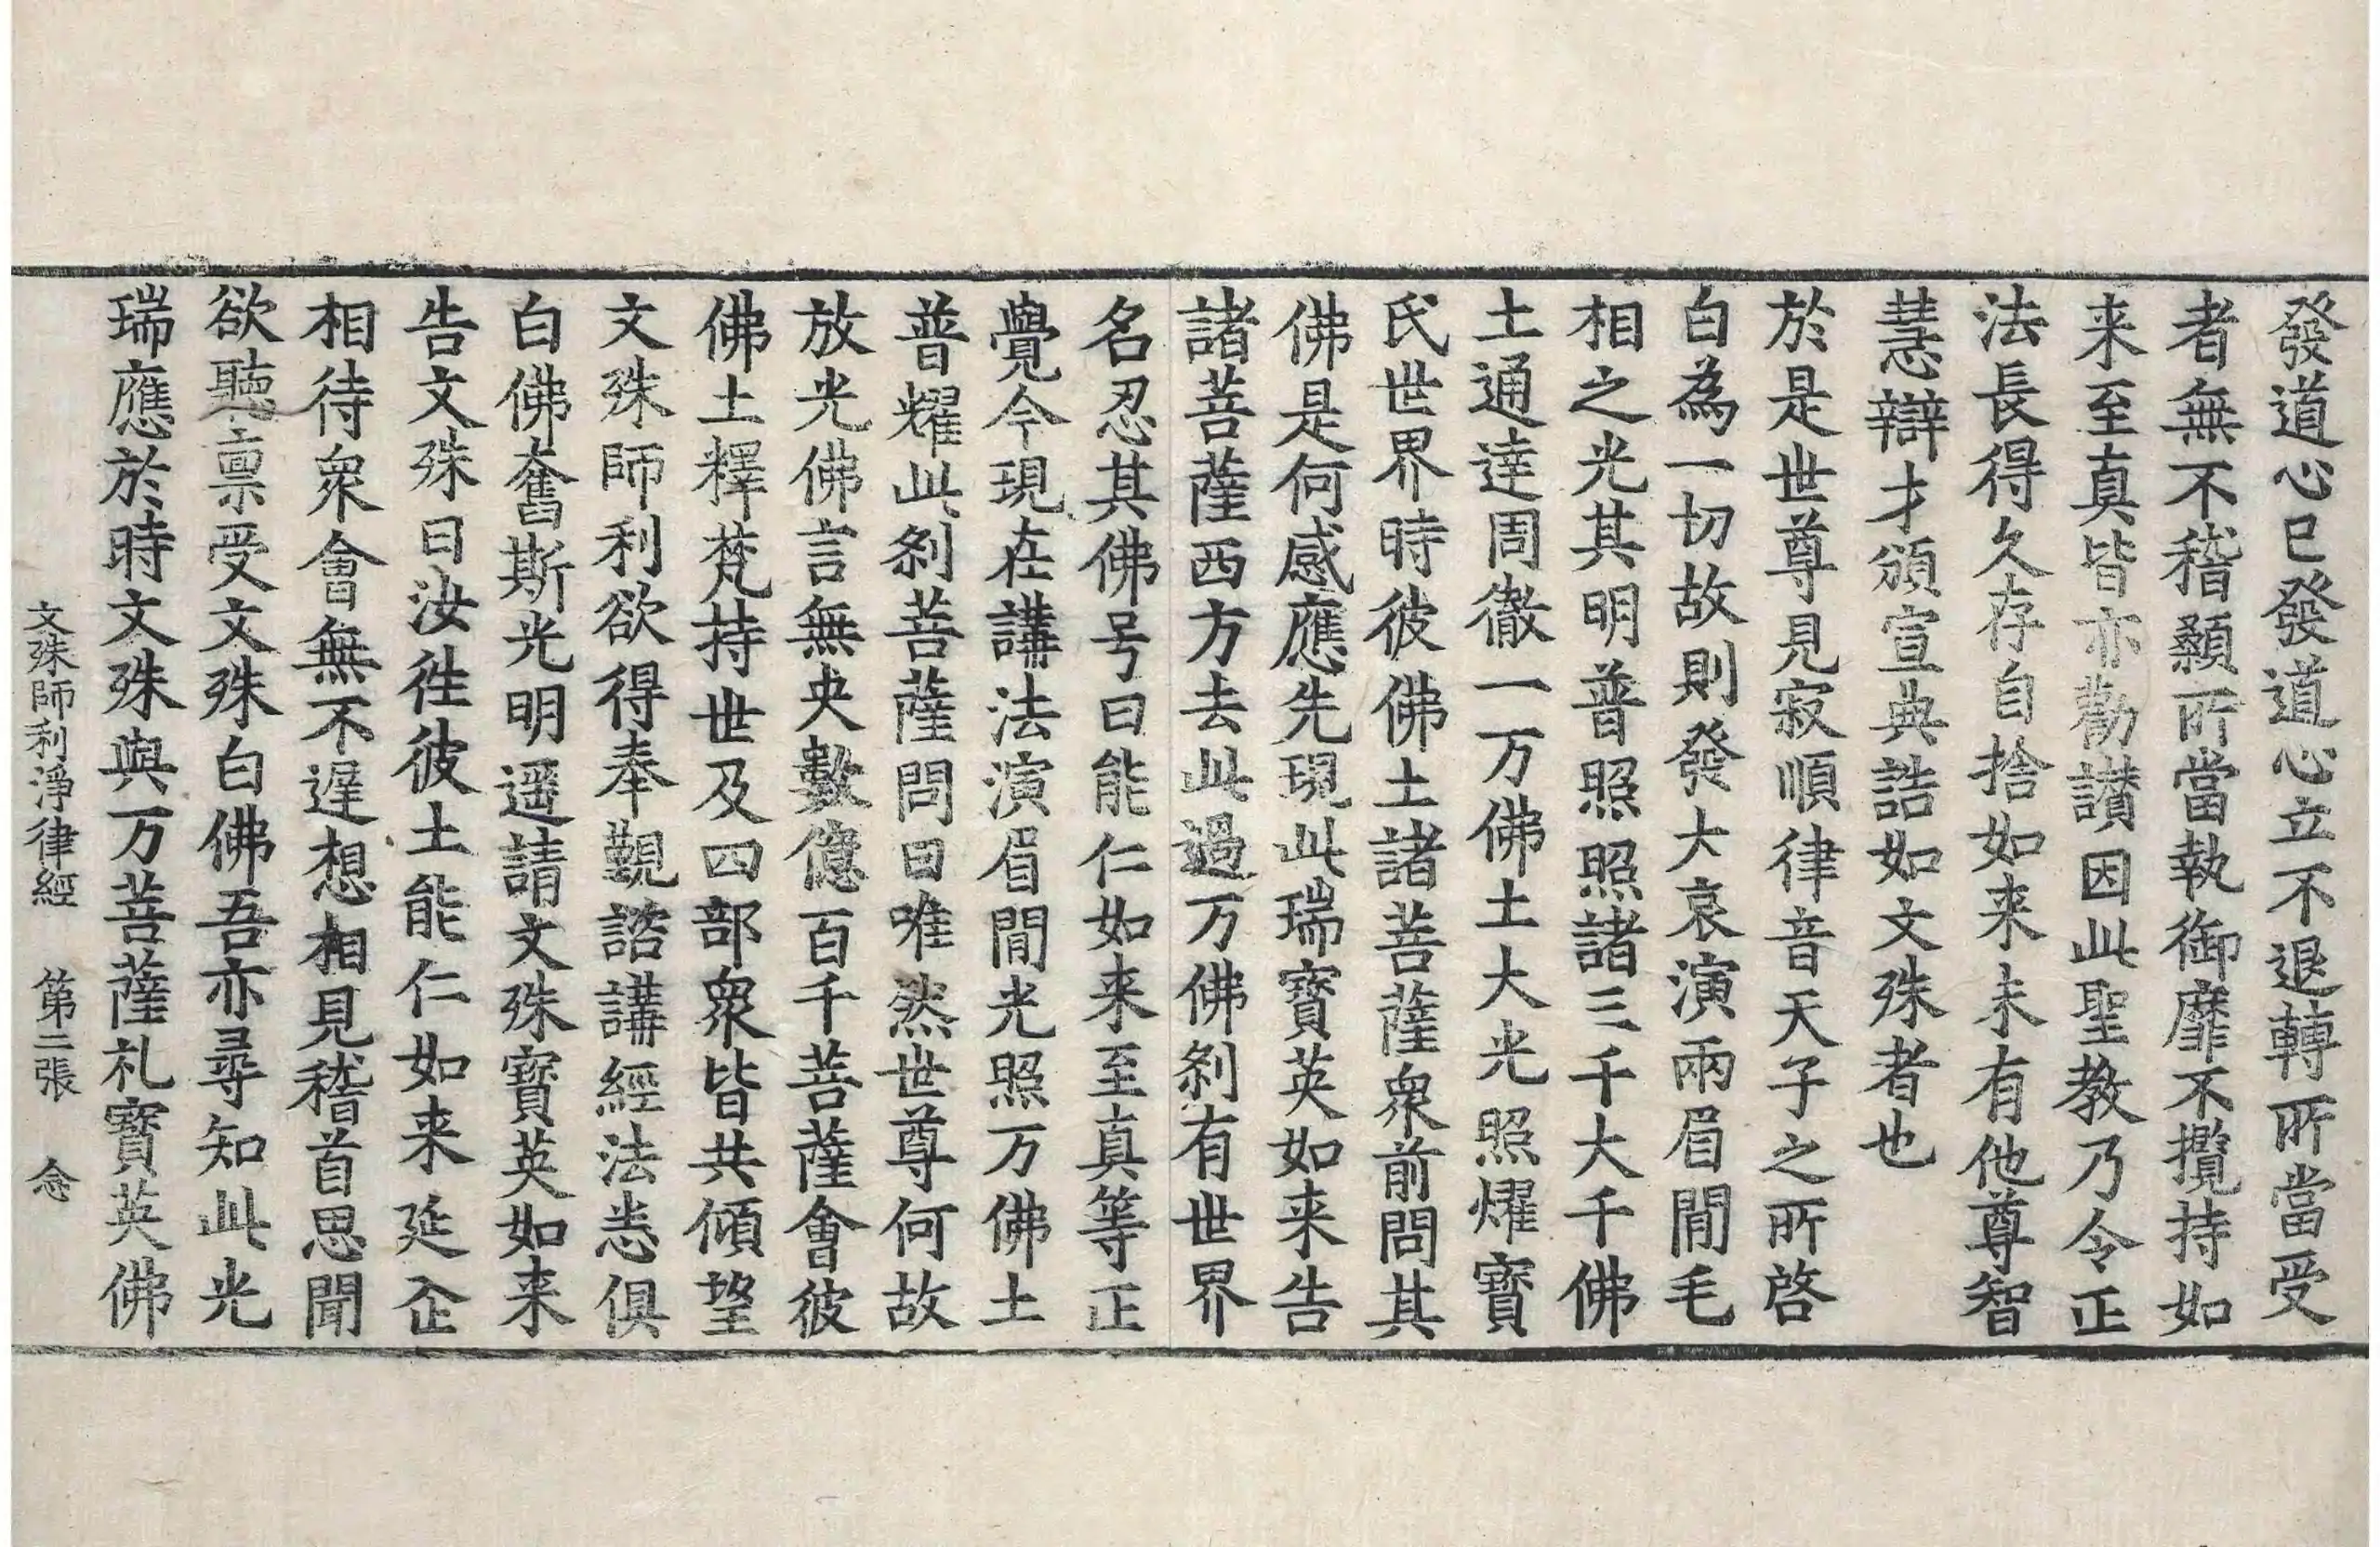 發道心已發道心立不退轉所當受
者無不稽顙所當執御靡不攬持如
来至真皆亦勸讃因此聖教乃令正
法長得久存自捨如来未有他尊智
慧辯才頒宣典誥如文殊者也
於是世尊見寂順律音天子之所啓
白為一切故則發大哀演兩眉間毛
相之光其明普照照諸三千大千佛
土通達周徹一万佛土大光照燿寶
氏世界時彼佛土諸菩薩衆前問其
佛是何感應先現此瑞寶英如来告
諸菩薩西方去此過万佛刹有世界
名忍其佛号曰能仁如来至真等正
覺今現在講法演眉間光照万佛土
普耀此刹菩薩問曰唯然世尊何故
放光佛言無央數億百千菩薩會彼
佛土釋梵持世及四部衆皆共傾望
文殊師利欲得奉覲諮講經法恙俱
白佛奮斯光明遥請文殊寶英如来
告文殊曰汝徃彼土能仁如来延企
相待衆會無不遅想相見稽首思聞
欲聽禀受文殊白佛吾亦尋知此光
瑞應於時文殊與万菩薩礼寶英佛
文殊師利淨律經 第二張 念